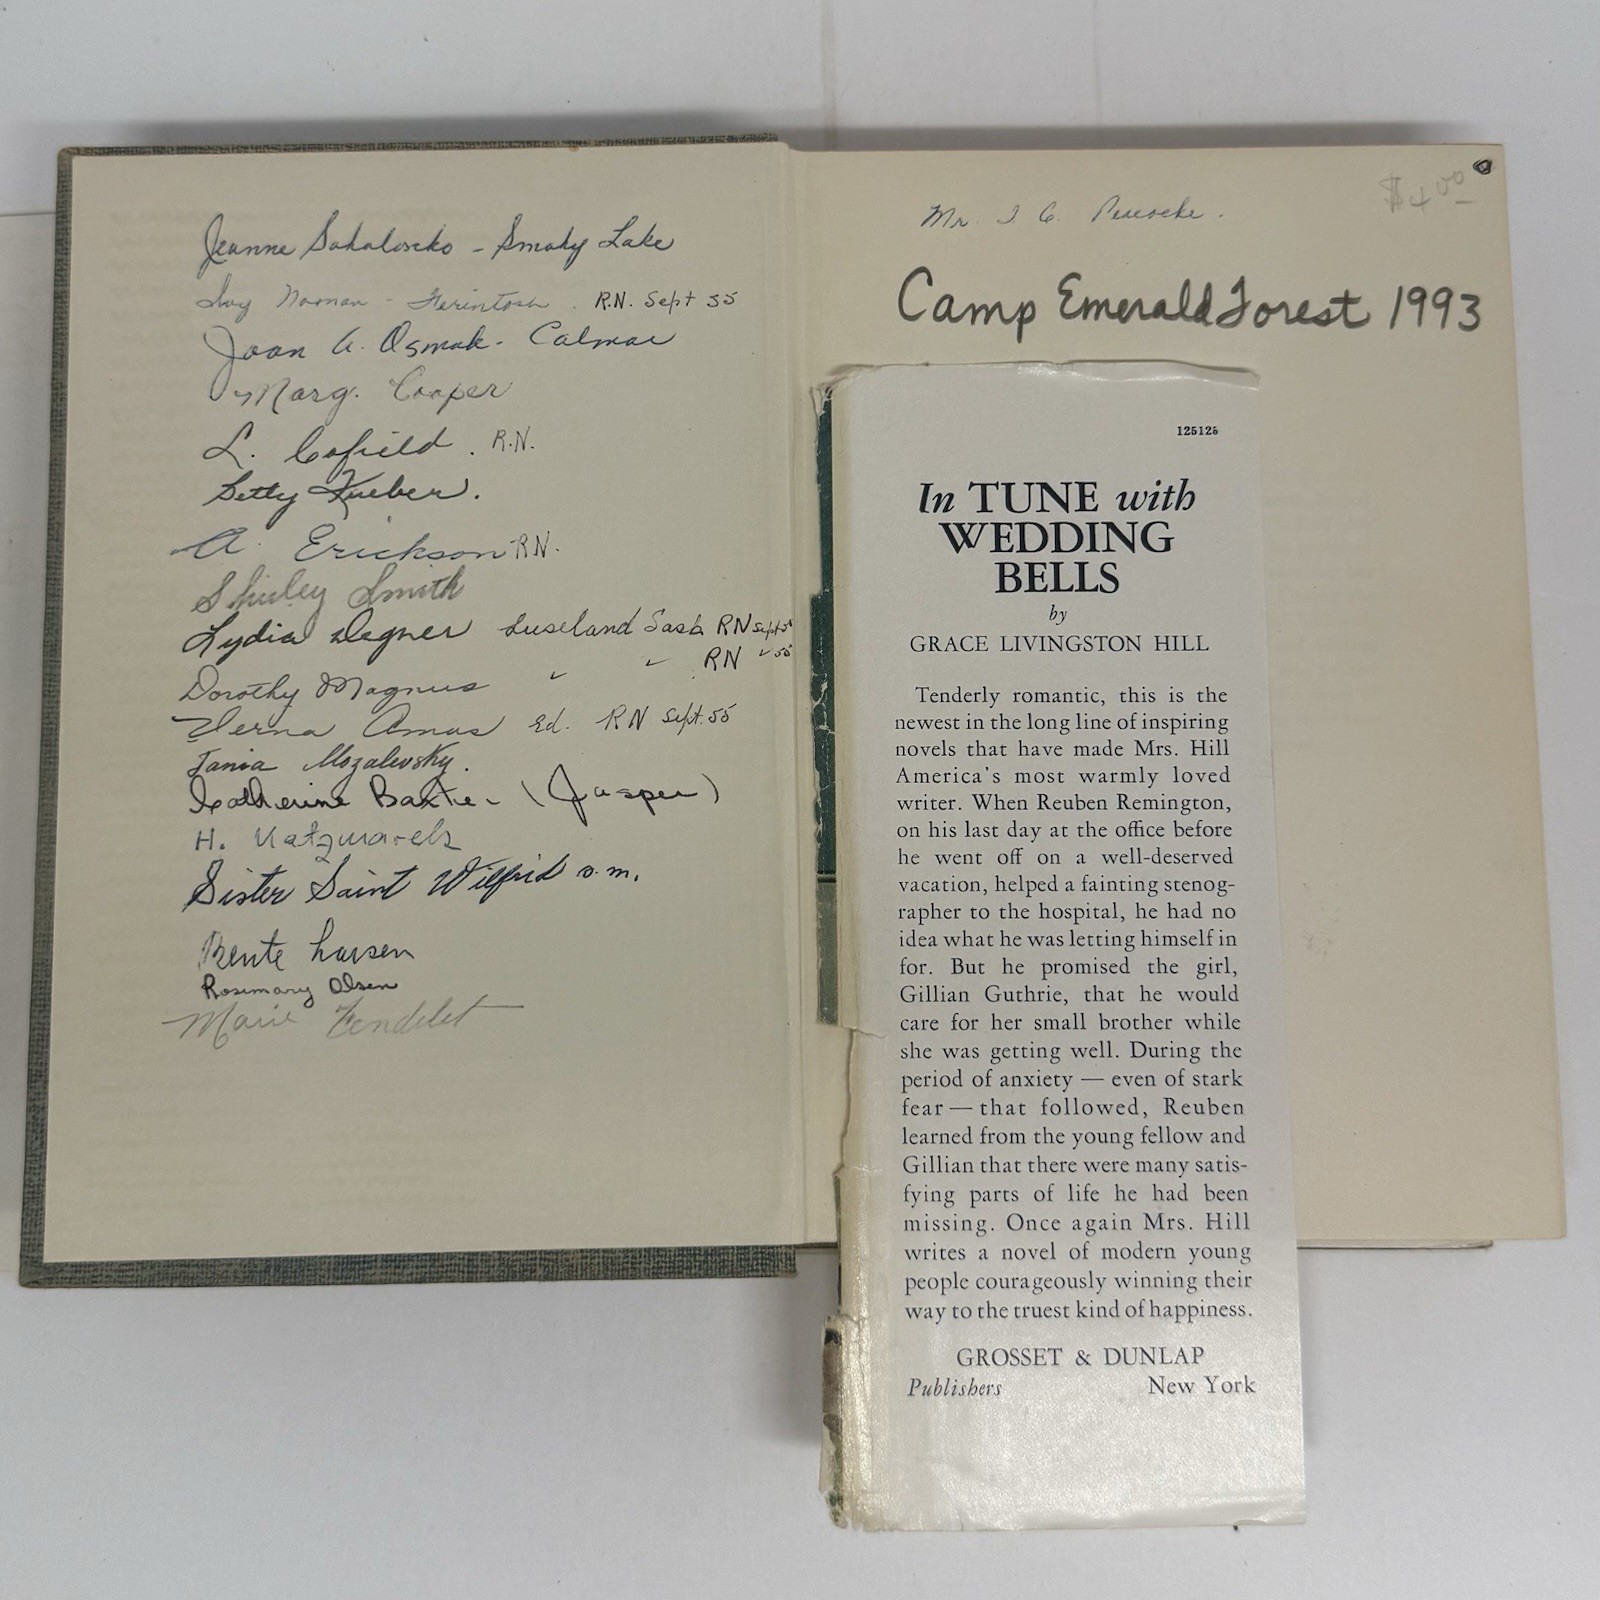 Jeanne Sokolosko - Smoky Lake
Noonan - R.N. Sept 55
Joan A. Osmak - Calmar
Marg. Cooper
L. Cofield. R.N.
Betty Kueber.
A. Erickson RN.
Shirley Smith
Lydia Degner Luseland Sask RN Sept 55
Dorothy Magnus " " RN " 55
Verna Amas Ed. RN Sept. 55
Tania Mozalevsky.
Catherine Baxter - (Jasper)
H.
Sister Saint Wilfrid s.m.
Bente Larsen
Rosemary Olsen
Marie
Mr.
$4.00
Camp Emerald Forest 1993
125125
In TUNE with
WEDDING
BELLS
by
GRACE LIVINGSTON HILL
Tenderly romantic, this is the
newest in the long line of inspiring
novels that have made Mrs. Hill
America's most warmly loved
writer. When Reuben Remington,
on his last day at the office before
he went off on a well-deserved
vacation, helped a fainting stenog-
rapher to the hospital, he had no
idea what he was letting himself in
for. But he promised the girl,
Gillian Guthrie, that he would
care for her small brother while
she was getting well. During the
period of anxiety — even of stark
fear — that followed, Reuben
learned from the young fellow and
Gillian that there were many satis-
fying parts of life he had been
missing. Once again Mrs. Hill
writes a novel of modern young
people courageously winning their
way to the truest kind of happiness.
GROSSET & DUNLAP
Publishers New York